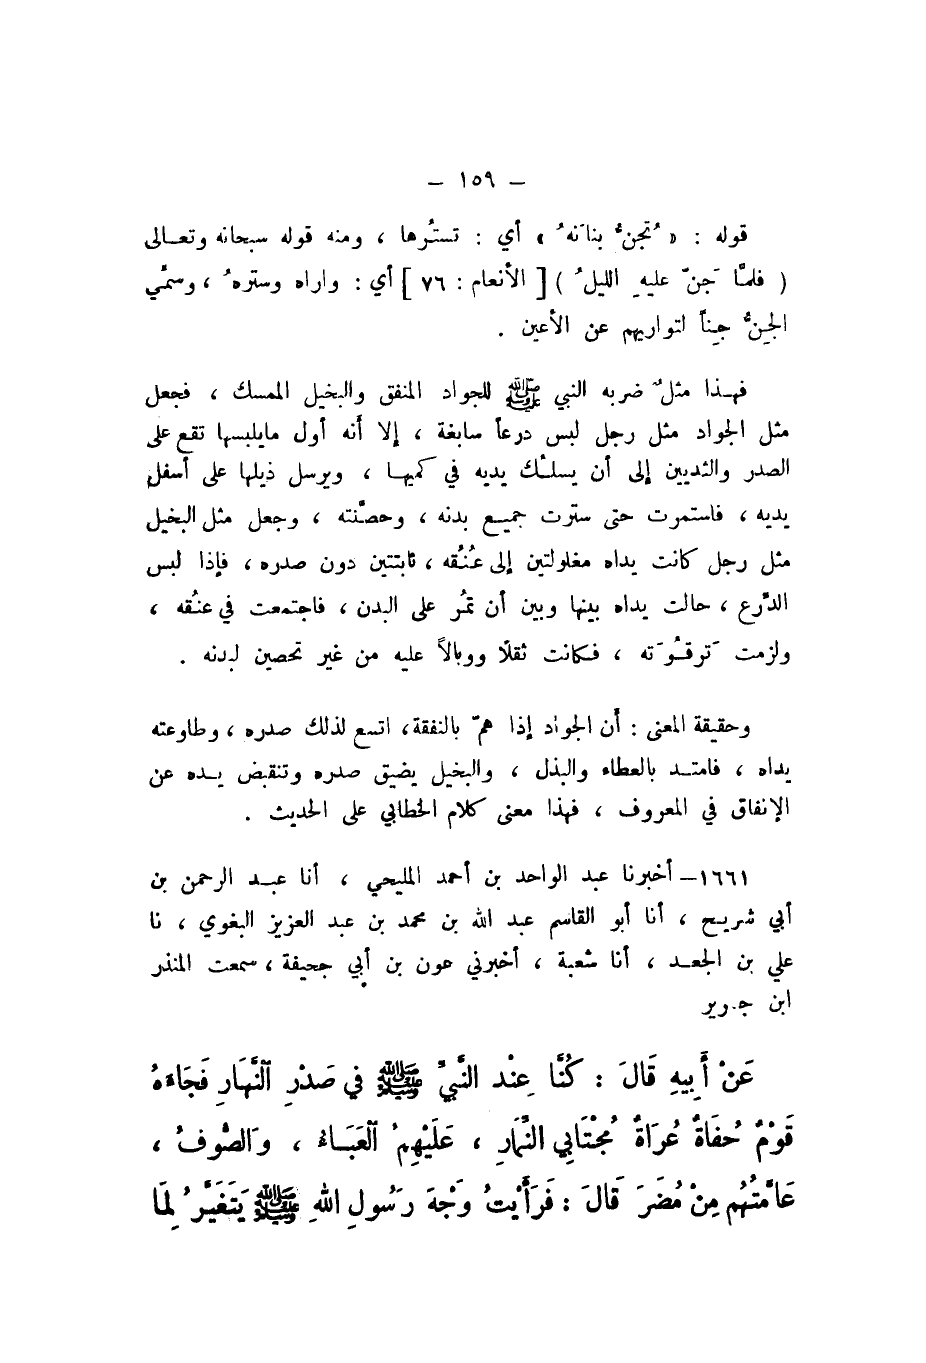 – ١٥٩ –
قوله : « تُجِنُّ بنانَهُ » أي : تسترُها ، ومنه قوله سبحانه وتعـالى
( فلمَّا جَنَّ عليهِ الليلُ ) [ الأنعام : ٧٦ ] أي : واراه وسترهُ ، وسمِّي
الجِنُّ جِناً لتواريهم عن الأعين .
فهـذا مثلٌ ضربه النبي ﷺ للجواد المنفق والبخيل الممسك ، فجعل
مثل الجواد مثل رجل لبس درعاً سابغة ، إلا أنه أول مايلبسها تقع على
الصدر والثديين إلى أن يسلـُك يديه في كميهـا ، ويرسل ذيلها على أسفل
يديه ، فاستمرت حتى سترت جميـع بدنه ، وحصَّنته ، وجعل مثل البخيل
مثل رجل كانت يداه مغلولتين إلى عُنُقه ، ثابتتين دون صدره ، فإذا لبس
الدِّرع ، حالت يداه بينها وبين أن تمُر على البدن ، فاجتمعت في عنُقه ،
ولزمت تَرقُوَته ، فكانت ثقلًا ووبالاً عليه من غير تحصين لبدنه .
وحقيقة المعنى : أن الجواد إذا همّ بالنفقة ، اتسع لذلك صدره ، وطاوعته
يداه ، فامتـد بالعطاء والبذل ، والبخيل يضيق صدره وتنقبض يـده عن
الإنفاق في المعروف ، فهذا معنى كلام الخطابي على الحديث .
١٦٦١ – أخبرنا عبد الواحد بن أحمد المليحي ، أنا عبـد الرحمن بن
أبي شريـح ، أنا أبو القاسم عبد الله بن محمد بن عبد العزيز البغوي ، نا
علي بن الجعـد ، أنا شعبة ، أخبرني عون بن أبي جحيفة ، سمعت المنذر
ابن جرير
عَنْ أَبِيهِ قَالَ : كُنَّا عِنْد النَّبِيِّ ﷺ في صَدْرِ ٱلنَّهَارِ فَجَاءَهُ
قَوْمٌ حُفَاةٌ عُرَاةٌ مُجْتَابِي النِّمَارِ ، عَلَيْهِمُ ٱلْعَبَـاءُ ، وَالصُّوفُ ،
عَامَّتُهُم مِنْ مُضَرَ قَالَ : فَرَأَيْتُ وَجْهَ رَسُولِ اللهِ ﷺ يَتَغَيَّرُ لِمَا